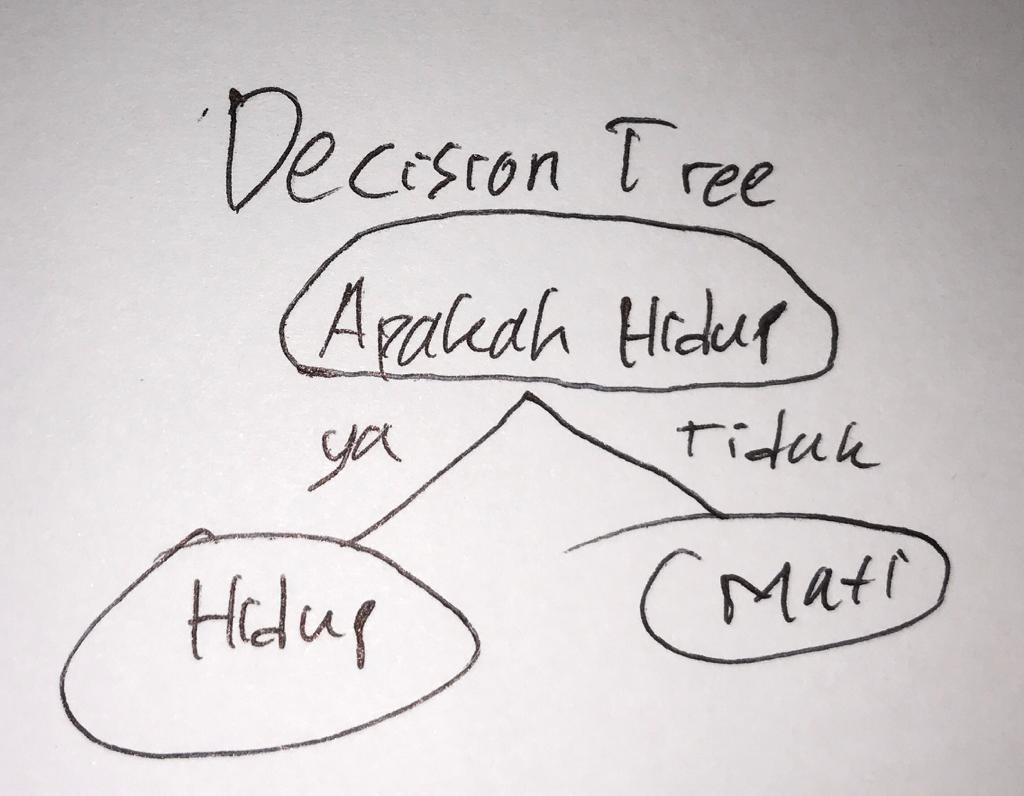 Decision Tree
Apakah Hidup
ya
Tidak
Hidup
Mati